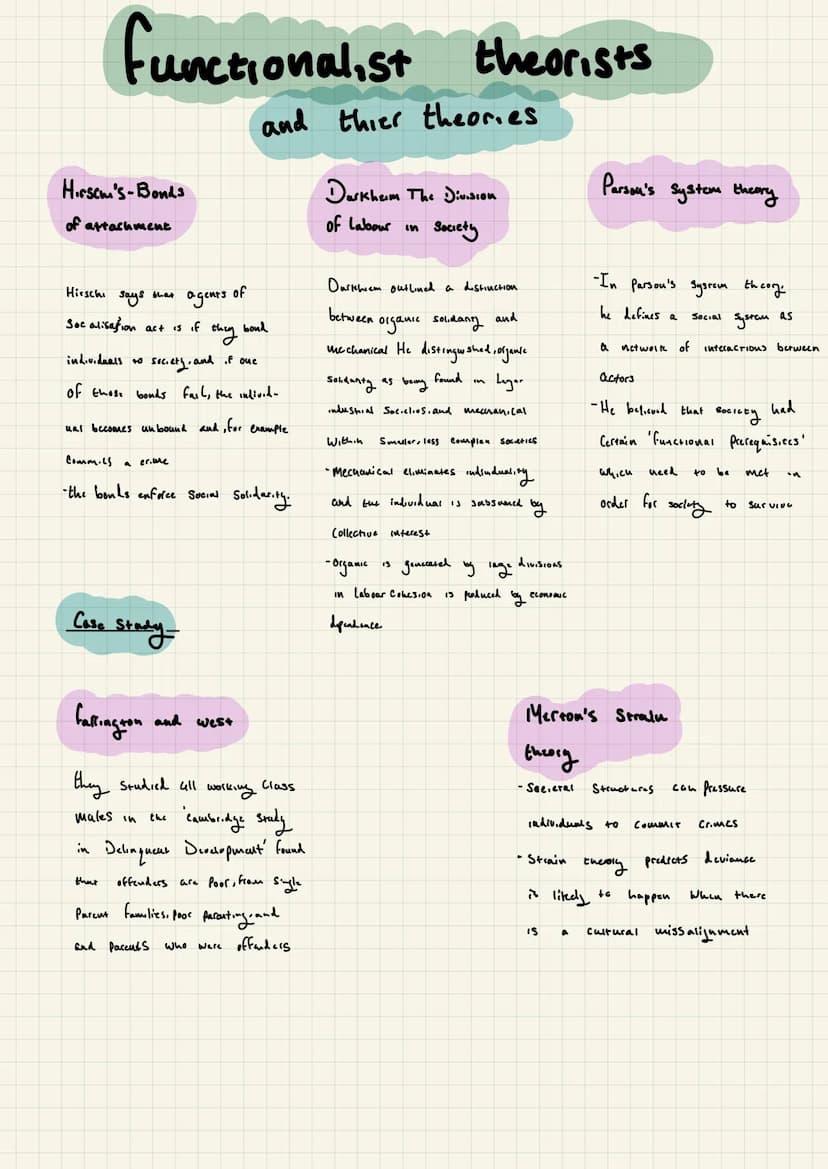 functionalist theorists
and thier theories
Hirschi's-Bonds
of attachment
Hirschi says that agents of
Socialisation act is if they bond
individuals to society. and if one
of those bonds fail, the individ-
ual becomes unbound and, for example
commits a crime
-the bonds enforce Social Solidarity.
Durkheim The Division
of Labour in Society
Durkheim outlined a distinction
between organic solidarity and
mechanical He distingushed, organic
Solidarity as being found in larger
industrial Societies. and mechanical
within Smaller, less complex societies
-Mechanical eliminates individuality
and the individual is subsumed by
Collective interest
-Organic is generated by large divisions
in labour Cohesion is produced by economic
dpendence
Parson's System theory
-In Parson's System theory.
he defines a social system as
a network of interactions between
actors
-He believed that society had
Certain 'functional Prerequisites'
which need to be met in
order for society to survive
Case Study
farrington and west
they Studied 411 working class
males in the 'Cambridge Study
in Delinquent Development' found
that offenders are Poor, from Single
Parent families, poor parenting. and
and parents who were offenders
Merton's Strain
theory
- Societal Structures can Pressure
individuals to commit crimes
- Strain theory predicts deviance
is likely to happen when there
is a cultural missalignment